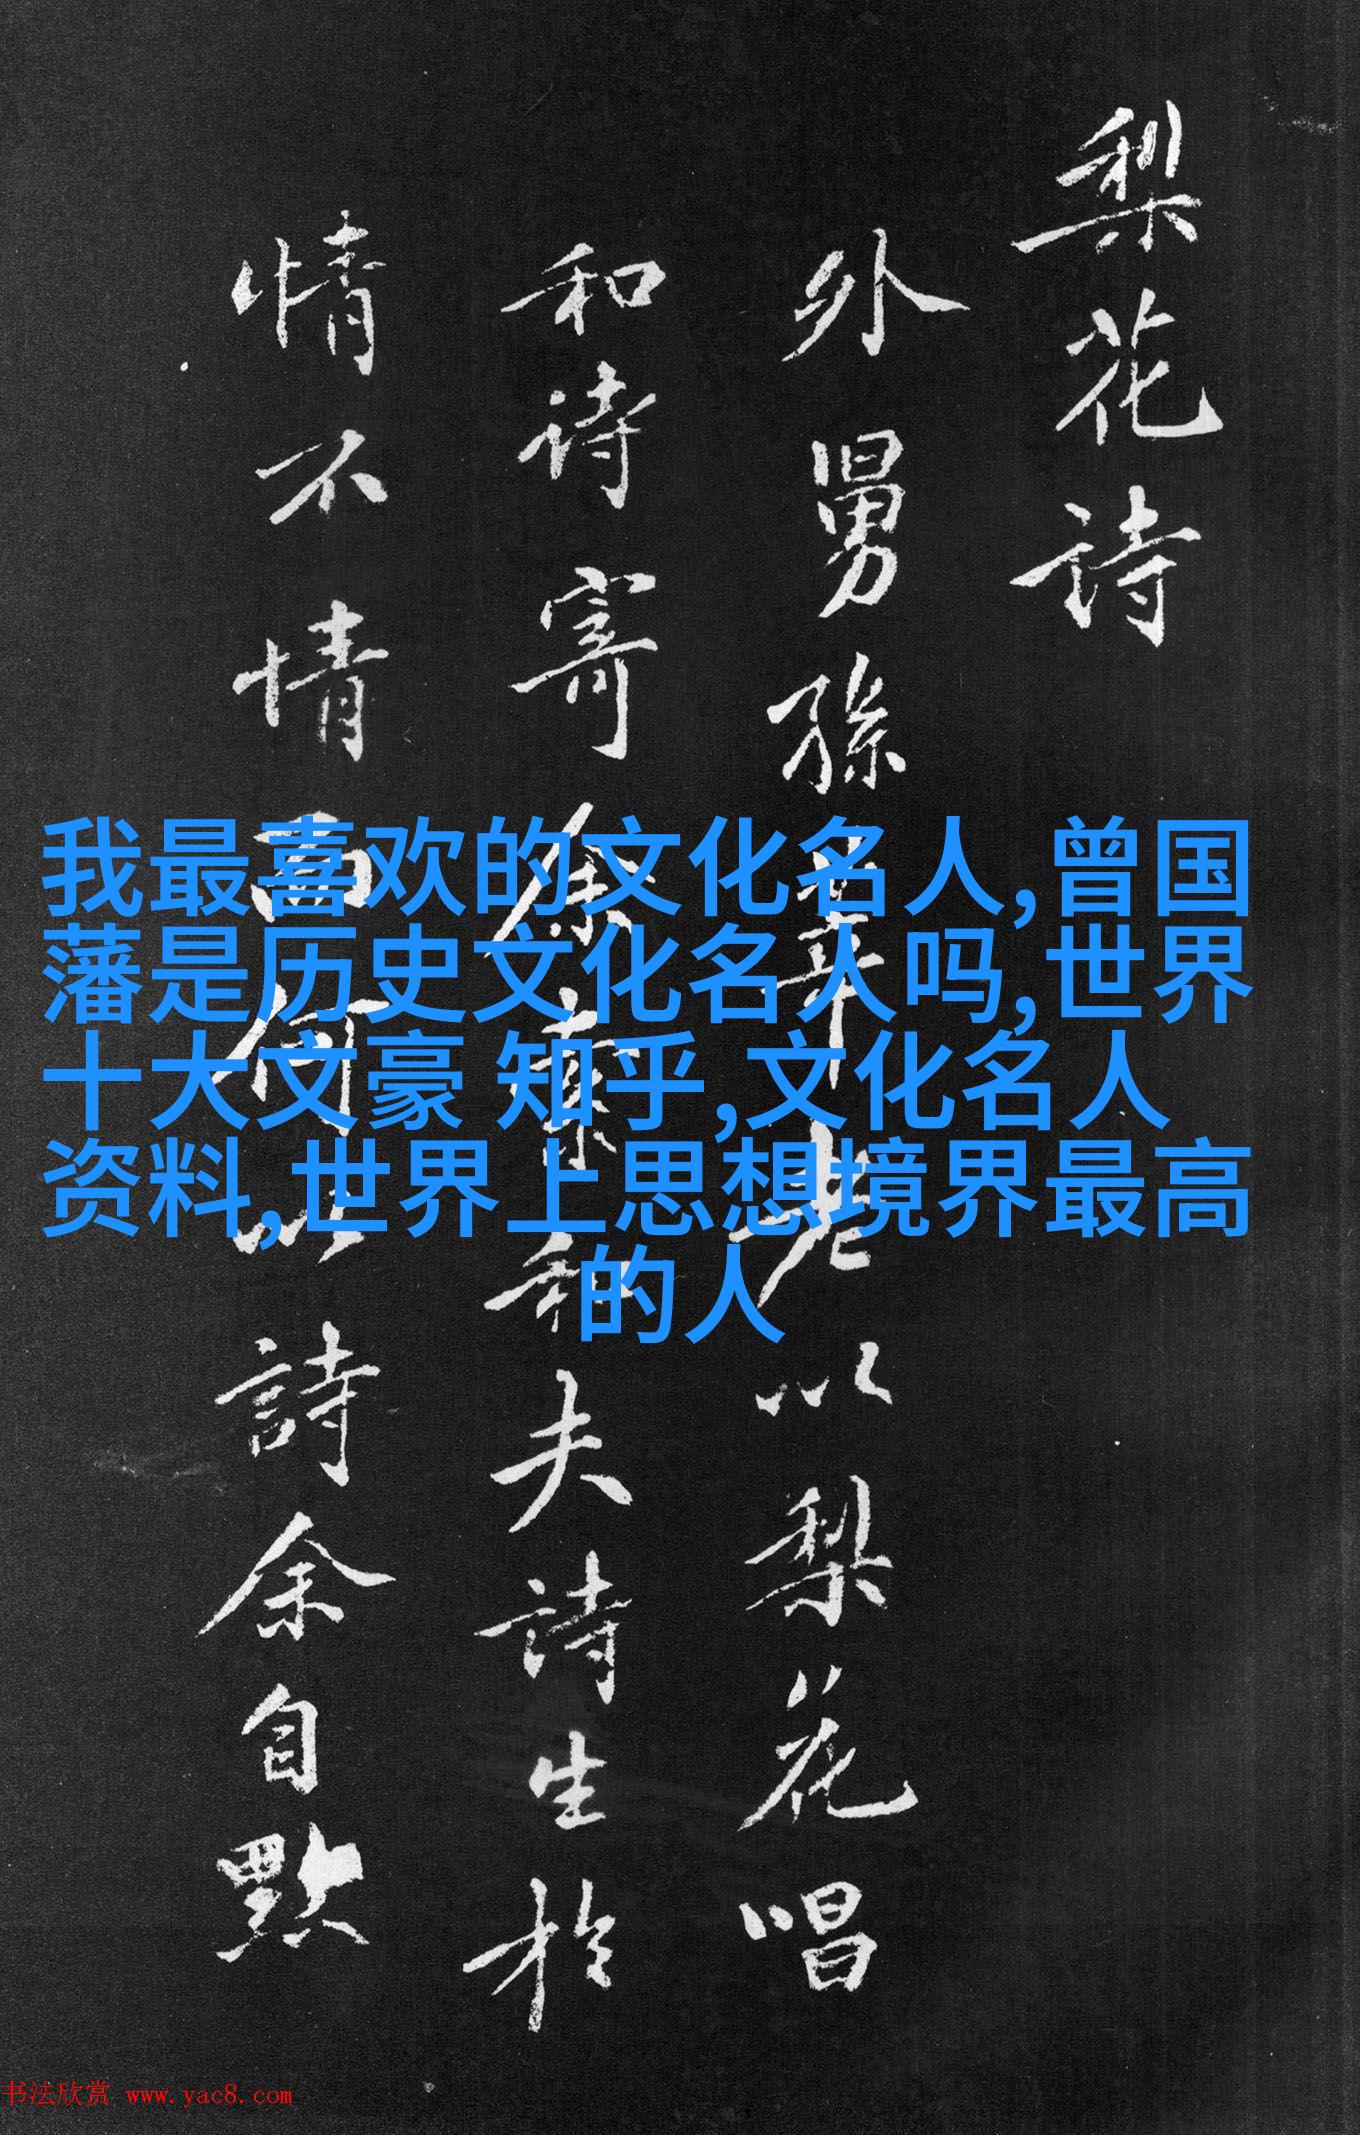 梨花詩
外舅孫莘老以梨花唱
和诗寄余索和夫詩生於
情不情而何以詩余自默
我最喜欢的文化名人,曾国
藩是历史文化名人吗,世界
十大文豪 知乎,文化名人
资料,世界上思想境界最高
的人
书法欣赏 www.yac8.com